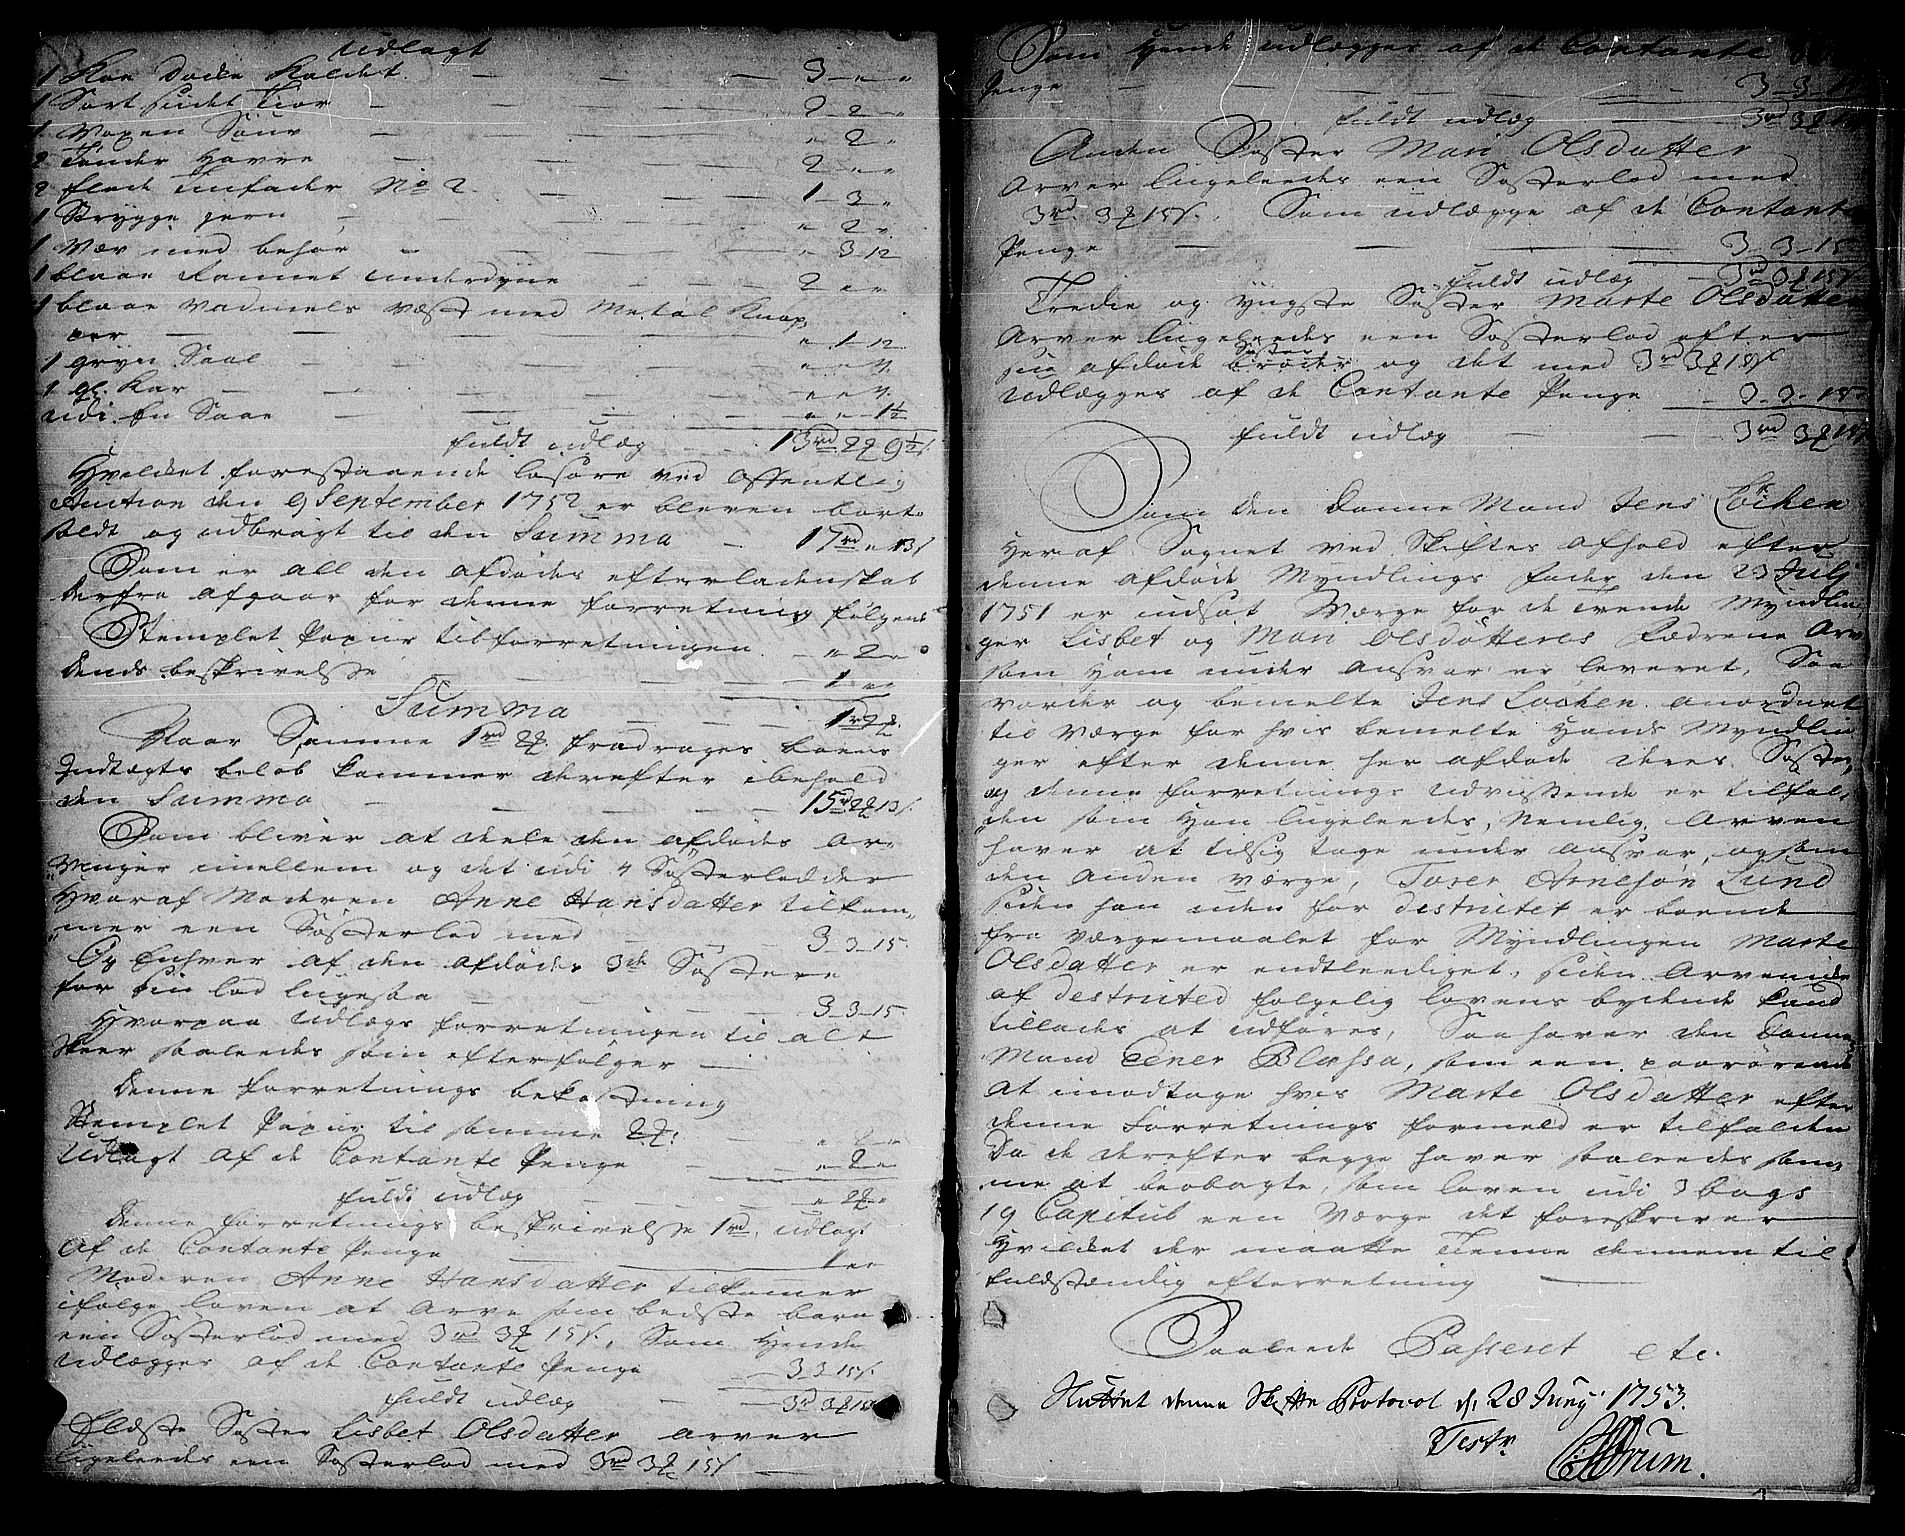 Udlagt
1 Koe Döele Kaldet — 3 - " - "
1 Sort siidet Kior — 2 - 2 - "
1 Voxen Souv — " 2 "
2 Tönder Havre — 2 - " "
2 flade Tinfader No 2. — 1 - 3 - "
1 Strygge jern — " 2 "
1 Væv med behör — " 3 - 12
1 blaae Rannet Underdyne — 2 " "
1 blaae Vadmels Væst med Metal Knap-
per — " 1 - 12
1 gryn Saal — " " 4.
1 gl. Kar — " " 4.
Udi En Saae — " " 1½
fuldt udlæg — 13 rd 2 ₰ 9½ s.
Hvilket forestaaende lösöre ved offentlig
Auction den 9 September 1752 er bleven bort-
soldt og udbragt til den Summa — 17 rd " 13 s
Som er all den afdödes efterladenskab
Derfra afgaar for denne forretning fölgend
Stemplet Papiir til forretningen — " 2 "
Dends beskrivelse — 1 " "
Summa — 1 rd 2 ₰.
Naar Summe 1 rd 2 ₰. fradrages boens
Indtægts belöb kommer derefter i behold
den Summa — 15 rd 2 ₰ 13 s.
Som bliver at deele den afdödes Ar-
vinger imellem og det udi 4 Sösterlodder
Hvoraf Moderen Anne Hansdatter tilkom-
mer een Sösterlod med — 3 - 3 - 15.
Og Enhver af den afdödes 3de Söstere
for sin lod ligesaa — 3 - 3 - 15
Hvorpaa Udlægs forretningen til alt
skeer saaleedes som efterfölger —
Denne forretnings bekostning
Stemplet Papiir til samme 2 ₰: — " 2 "
Udlagt af de Contante Penge — " 2 "
fuldt udlæg — " 2 ₰ "
Denne forretnings beskrivelse 1 rd, udlagt
af de Contante Penge — 1 " "
Moderen Anne Hansdatter tilkomer
ifölge loven at Arve som bedste barn
een Sösterlod med 3 rd 3 ₰ 15 s. Som Hende
Udlægges af de Contante Penge — 3 3 15 s.
fuldt udlæg — 3 rd 3 ₰ 15
Eldste Söster Lisbet Olsdatter arver
ligeleedes een Sösterlod med 3 rd 3 ₰ 15 s
Som Hende udlægges af de Contante
Penge — 3 - 3 - 15
fuldt udlæg — 3 rd 3 ₰ 15
Anden Söster Mari Olsdatter
Arver ligeleedes een Sösterlod med
3 rd. 3 ₰ 15 s. Som udlægge af de Contante
Penge — 3 - 3 - 15
fuldt udlæg — 3 rd 3 ₰ 15 s.
Tredie og yngste Söster Marte Olsdatter
Arver ligeleedes een Sösterlod efter
Söster
sin afdöde bröder og det med 3 rd 3 ₰ 15 s
Udlægges af de Contante Penge — 3 - 3 - 15
fuldt udlæg — 3 rd 3 ₰ 15
Som den Danne Mand Jens Löcken
Her af Sognet ved Skiftes afhold efter
denne afdöde Myndlings fader den 23 July
1751 er udsat Værge for de tvende Myndlin-
ger Lisbet og Mari Olsdötteres Fædrene Arv
som Ham under ansvar er leveret, Saa
vorder og bemelte Jens Locken anordnet
til Værge for hvis bemelte Hands Myndlin
ger efter denne her afdöde deres Söster,
og denne forretnings Udvisende er tilfal-
den som Han ligeleedes, Nemlig. Arven
haver at tilsig tage under ansvar, og som
den anden Værge, Torer Arnesön Lund
siden han uden for destrictet er boende
fra Værgemaalet for Myndlingen Marte
Olsdatter er endtleediget, siden Arvemidl
af destricted fölgelig lovens bydende kand
tillades at udföres, Saa haver den Danne
Mand Eener Blæssa, som een paarörende
at imodtage hvis Marte Olsdatter efter
denne Forretnings formeld er tilfalden
Da de derefter begge haver saaleedes sam-
me at beobagte, som loven udi 3 bogs
19 Capitul een Værge det foreskriver
Hvilket der maatte Tiene dennem til
fuldstændig efterretning —
Saaleede Passeret etc.
Sluttet denne Skifte Protocol d. 28 Juny 1753.
Test.